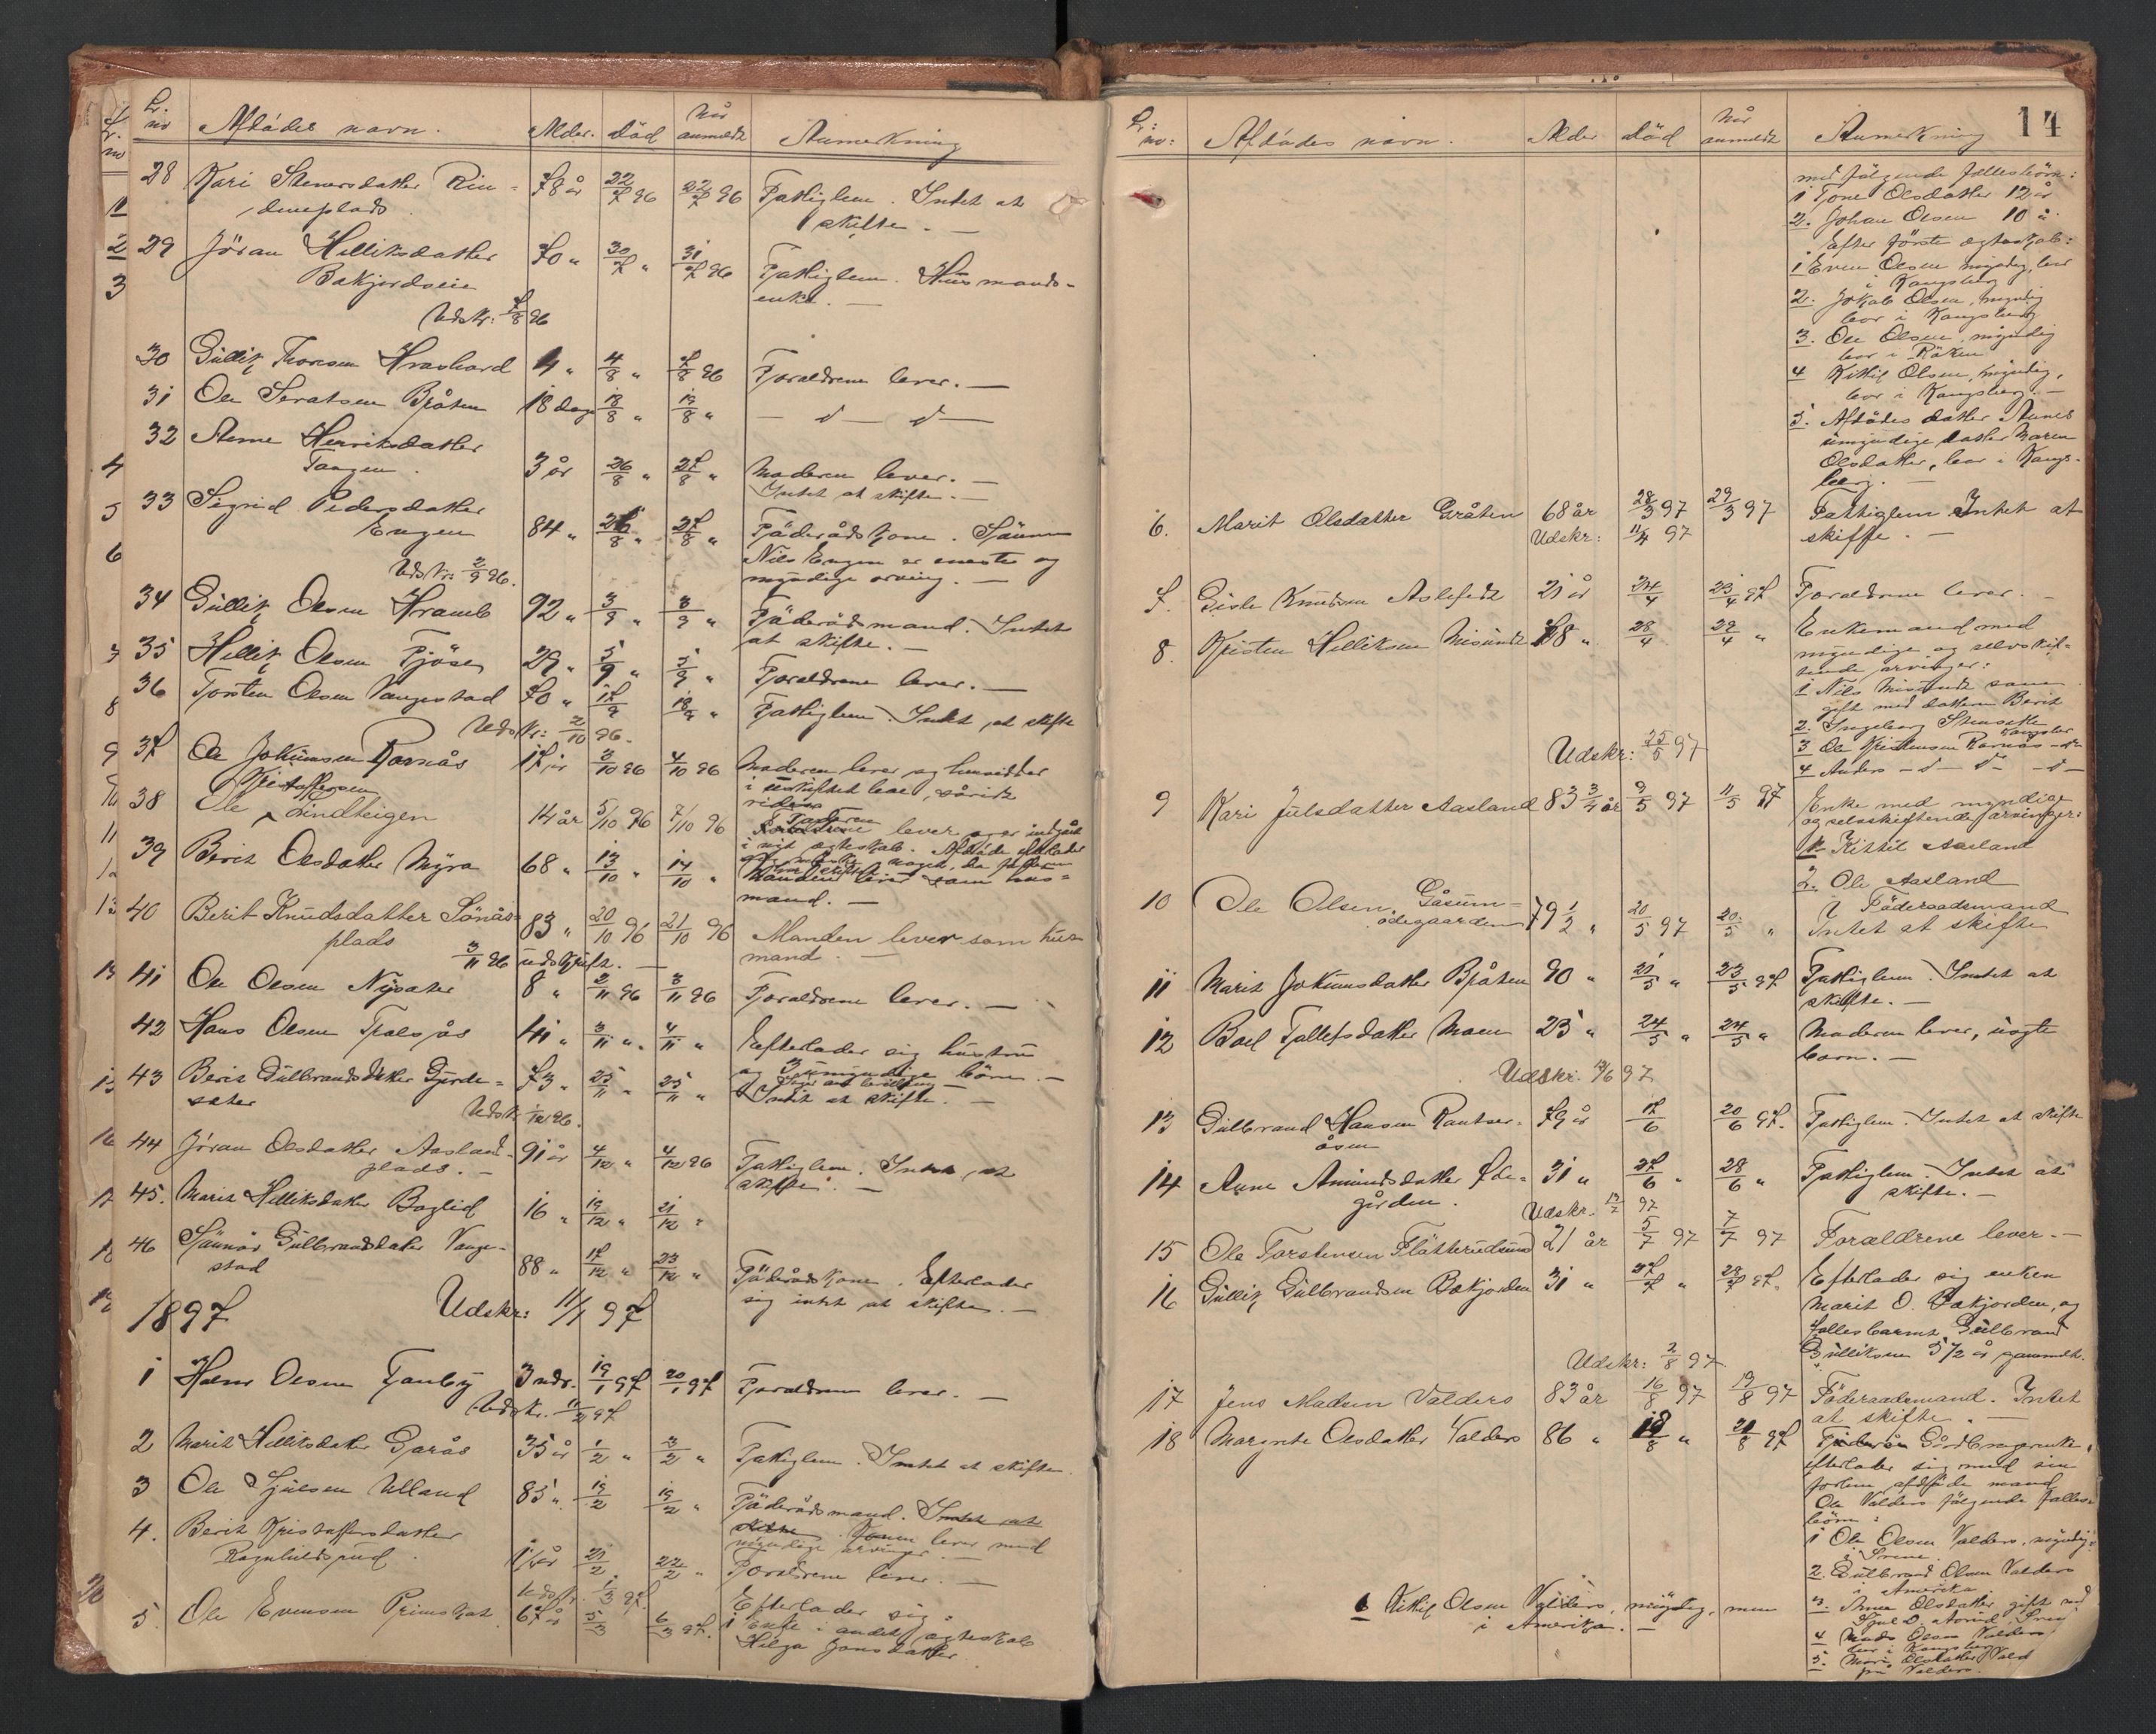 Lr. no
Afdødes navn.
Alder.
Død
Når anmeldt
Anmerkning
28 Kari Stenersdatter Rin-
deneplads
78 år 22/7 96 22/7 96 Fattiglem. Intet at
skifte.
29 Jöran Helliksdatter
Bakjordseie
70 " 30/7 " 31/7 96 Fattiglem. Husmands-
enke.
Udskr: 7/8 96
30 Gullik Thoresen 4 " 4/8 " 7/8 96 Foraldrene lever.
31 Ole Bråten 18 dage 18/8 " 19/8 " — d — d —
32 Anne Henriksdatter
Tangen
3 år 26/8 " 27/8 " Moderen lever.
Intet at skifte.
33 Sigrid Pedersdatter
Engen
84 " 26/8 " 27/8 " Föderådskone. Sönnen
Nils Engen er eneste og
myndige arving.
Udskr: 2/9 96.
34 Gullik Olsen Hramb 92 " 3/9 " 3/9 " Föderådsmand. Intet
at skifte.
35 Hellik Olsen Fjöse 29 " 5/9 " 5/9 " Foraldrene lever.
36 Torsten Olsen Vangestad 70 " 17/9 18/9 " Fattiglem. Intet at skifte
Udskr: 2/10 96.
37 Ole Jokumsen Rornås 17 år 3/10 96 4/10 96 Moderen lever og hensidder
i uskiftet bo, såvidt
vides
38 Ole Kristoffersen Lindteigen 14 år 5/10 96 7/10 96 Faderen lever og er indgået
i nyt egteskab.
39 Berit Olsdatter Myra 68 " 13/10 " 14/10 " Manden lever som hus-
mand.
40 Berit Knudsdatter Sönås-
plads
83 " 20/10 96 21/10 96 Manden lever som hus
mand.
3/11 96 udskrift.
41 Ole Olsen Nysater 8 " 2/11 96 3/11 96 Foraldrene lever.
42 Hans Olsen 41 " 3/11 " 4/11 " Efterlader sig hustru
og 3 umyndige börn.
43 Berit Gulbrandsdatter Gjerde-
sater
73 " 25/11 " 25/11 " Intet at skifte.
Udskr 1/12 96.
44 Jöran Olsdatter Aasland-
plads.
91 år 4/12 " 4/12 96 Fattiglem. Intet at
skifte.
45. Marit Helliksdatter Baglid 16 " 19/12 " 21/12 "
46 Gulbrandsdatter Vange-
stad
88 " 17/12 " 23/12 " Föderådskone. Efterlader
sig intet at skifte.
1897 Udskr: 11/1 97
1 Halvor Olsen Tomby 3 mdr. 19/1 97 20/1 97 Foraldrene lever.
Udskr. 11/2 97
2 Marit Helliksdatter Garås 35 år 1/2 " 3/2 " Fattiglem. Intet at skifte.
3 Ole Sjulsen Ulland 85 " 19/2 19/2 " Föderådsmand. Intet at
skifte. Konen lever med
myndige arvinger.
4. Berit Kristoffersdatter
Ragnhildsrud
21/2 22/2 " Foraldrene lever.
Udskr. 1/3 97.
5. Ole Evensen Primskat 67 år 5/3 6/3 97. Efterlader sig:
1 Enke i andet egteskab
Helga Jonsdatter
14
Lr: no:
Afdødes navn.
Alder
Död
Når anmeldt
Anmerkning
med fölgende fellesbörn:
1 Tone Olsdatter 12 år
2. Johan Olsen 10 å.
Efter förste egteskab:
1 Even Olsen myndig, bor
i Kongsberg
2. Jokob Olsen, myndig
bor i Kongsberg
3. Ole Olsen, myndig
bor i Röken
4 Kittil Olsen, myndig,
bor i Kongsberg.
5. Afdödes datter Annes
umyndige datter Maren
Olsdatter, bor i Kongs-
berg.
6. Marit Olsdatter Bråten 68 år 28/3 97 29/3 97 Fattiglem. Intet at
skifte.
Udskr: 11/4 97
7. Gisle Knudsen Aslefet 21 år 24/4 25/4 97 Foraldrene lever.
8. Kristen Helliksen Misund 78 " 28/4 29/4 " Enkemand med
myndige og selvskif-
tende arvinger:
1 Nils Misund
gift med datteren Berit
2. Ingeborg
3 Ole Kristensen Rornås
4 Anders — d — d — d —
Udskr: 25/5 97
9 Kari Julsdatter Aasland 83 3/4 år 9/5 97 11/5 97 Enke med myndige
og selvskiftende arvinger:
1. Kittil Aasland
2. Ole Aasland
10 Ole Olsen Gåsum-
ödegaarden
79 1/2 " 20/5 97 20/5 " Föderaadsmand
Intet at skifte
11 Marit Jokumsdatter Bråten 90 " 21/5 " 23/5 97 Fattiglem. Intet at
skifte.
12 Boel Tollefsdatter Moen 23 " 24/5 " 24/5 " Moderen lever, uægte
barn.
Udskr. 12/6 97
13 Gulbrand Hansen Rantser-
åsen
79 år 17/6 20/6 97. Fattiglem. Intet at skifte
14 Anne Amundsdatter Øde-
gården.
31 " 27/6 " 28/6 " Fattiglem. Intet at
skifte.
Udskr. 12/7 97
15 Ole Torstensen Flåtterudmoen 21 år 5/7 97 7/7 97 Forældrene lever.
16 Gullik Gulbrandsen Bakjorden 31 " 27/7 " 28/7 97. Efterlader sig enken
Marit O. Bakjorden, og
fellesbarnet Gulbrand
Gulliksen 5 1/2 år gammelt.
Udskr: 2/8 97.
17 Jens Madsen Valders 83 år 16/8 97 19/8 97 Föderaadsmand. Intet
at skifte.
18 Margrete Olsdatter Valders 86 " 18/8 " 21/8 97 Gårdbrugerenke,
efterlader sig med sin
forlem afdöde mand
Ole Valders fölgende felles-
börn:
1 Ole Olsen Valders, myndig,
2. Gulbrand Olsen Valders
i Amerika
3. Anne Olsdatter gift med
4 Mads Olsen Valders
bor i Kongsberg
5. Mari Olsdatter
på Valders.
6 Kittil Olsen Valders, myndig, men
i Amerika.